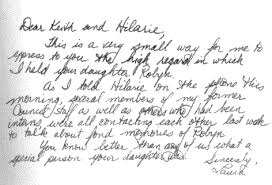 Dear Keith and Hilarie,
This is a very small way for me to
express to you the high regard in which
I held your daughter Robyn.
As I told Hilarie on the phone this
morning, several members of my former
Council staff as well as others who had been
interns, were all contacting each other last week
to talk about fond memories of Robyn.
You know better than any of us what a
special person your daughter was.
Sincerely,
David